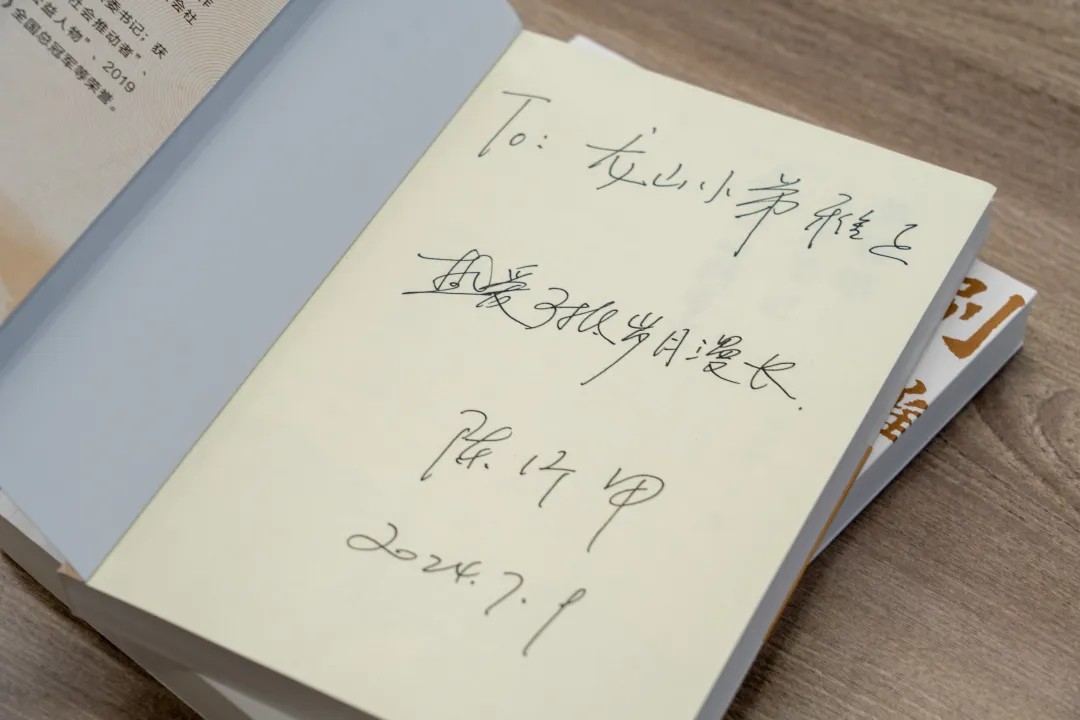 委书记；获
社会推动者”、
益人物”、2019
全国总冠军等荣誉。
To: 龙山小弟雅正
热爱可抵岁月漫长.
陈行甲
2024.7.9
别